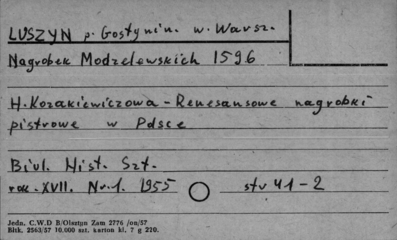 LUSZYN p. Gostynin. w. Warsz.
Nagrobek Modzelewskich 1596
H. Kozakiewiczowa - Renesansowe nagrobki
pistrowe w Polsce
Biul. Hist. Szt.
rok. XVII. Nr. 1. 1955 str 41-2
Jedn. C.W.D B/Olsztyn Zam 2776 /on/57
Bltk. 2563/57 10.000 szt. karton kl. ? g 220.